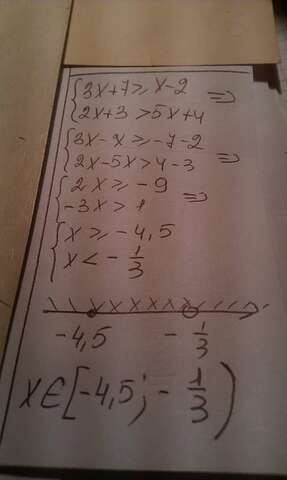 {3x+7≥x-2 =>
{2x+3>5x+4
{3x-x≥-7-2
{2x-5x>4-3 =>
{2x≥-9 =>
{-3x>1
{x≥-4,5
{x<-1/3
-4,5 -1/3
x∈[-4,5;-1/3)